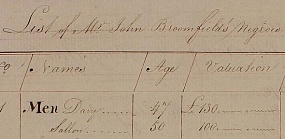 List of Mr John Broomfield's Negroes
No Names Age Valuation
1 Men Davy 47 £130
50 100